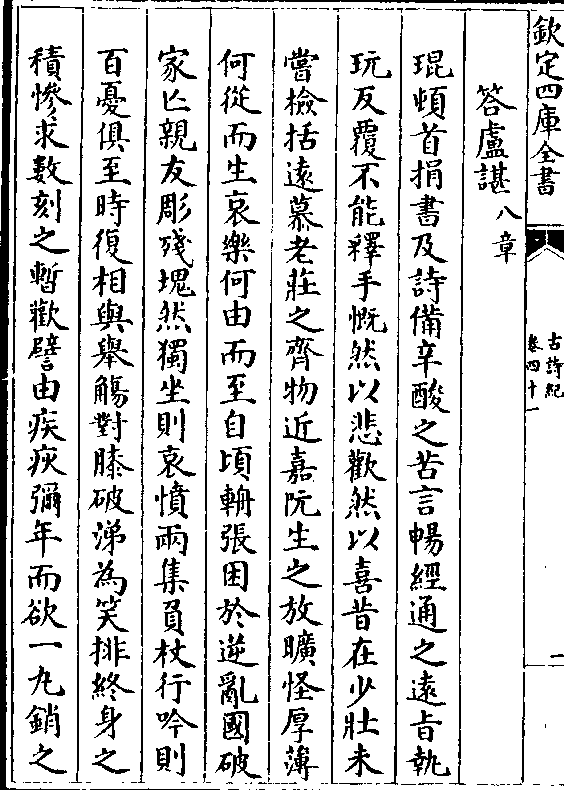 欽定四庫全書
古詩紀
卷四十一
二
答盧諶八章
琨頓首捐書及詩備辛酸之苦言暢經通之遠旨執
玩反覆不能釋手慨然以悲歡然以喜昔在少壯未
嘗檢括遠慕老莊之齊物近嘉阮生之放曠怪厚薄
何從而生哀樂何由而至自頃輈張困於逆亂國破
家亡親友彫殘塊然獨坐則哀憤兩集負杖行吟則
百憂俱至時復相與舉觴對膝破涕為笑排終身之
積慘求數刻之暫歡譬由疾疢彌年而欲一丸銷之